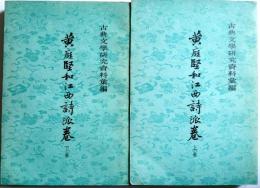 古典文學研究資料彙編
黄庭堅和江西詩派卷
下卷
古典文學研究資料彙編
黄庭堅和江西詩派卷
上卷